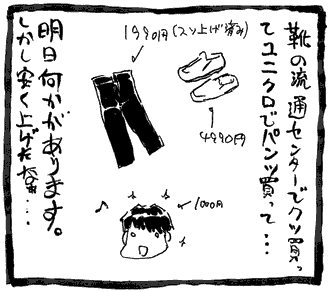 靴の流通センターでクツ買っ
てユニクロでパンツ買って・・・
1990円(スソ上げ済み)
4990円
1000円
明日何かがあります。
しかし安く上げたなぁ・・・